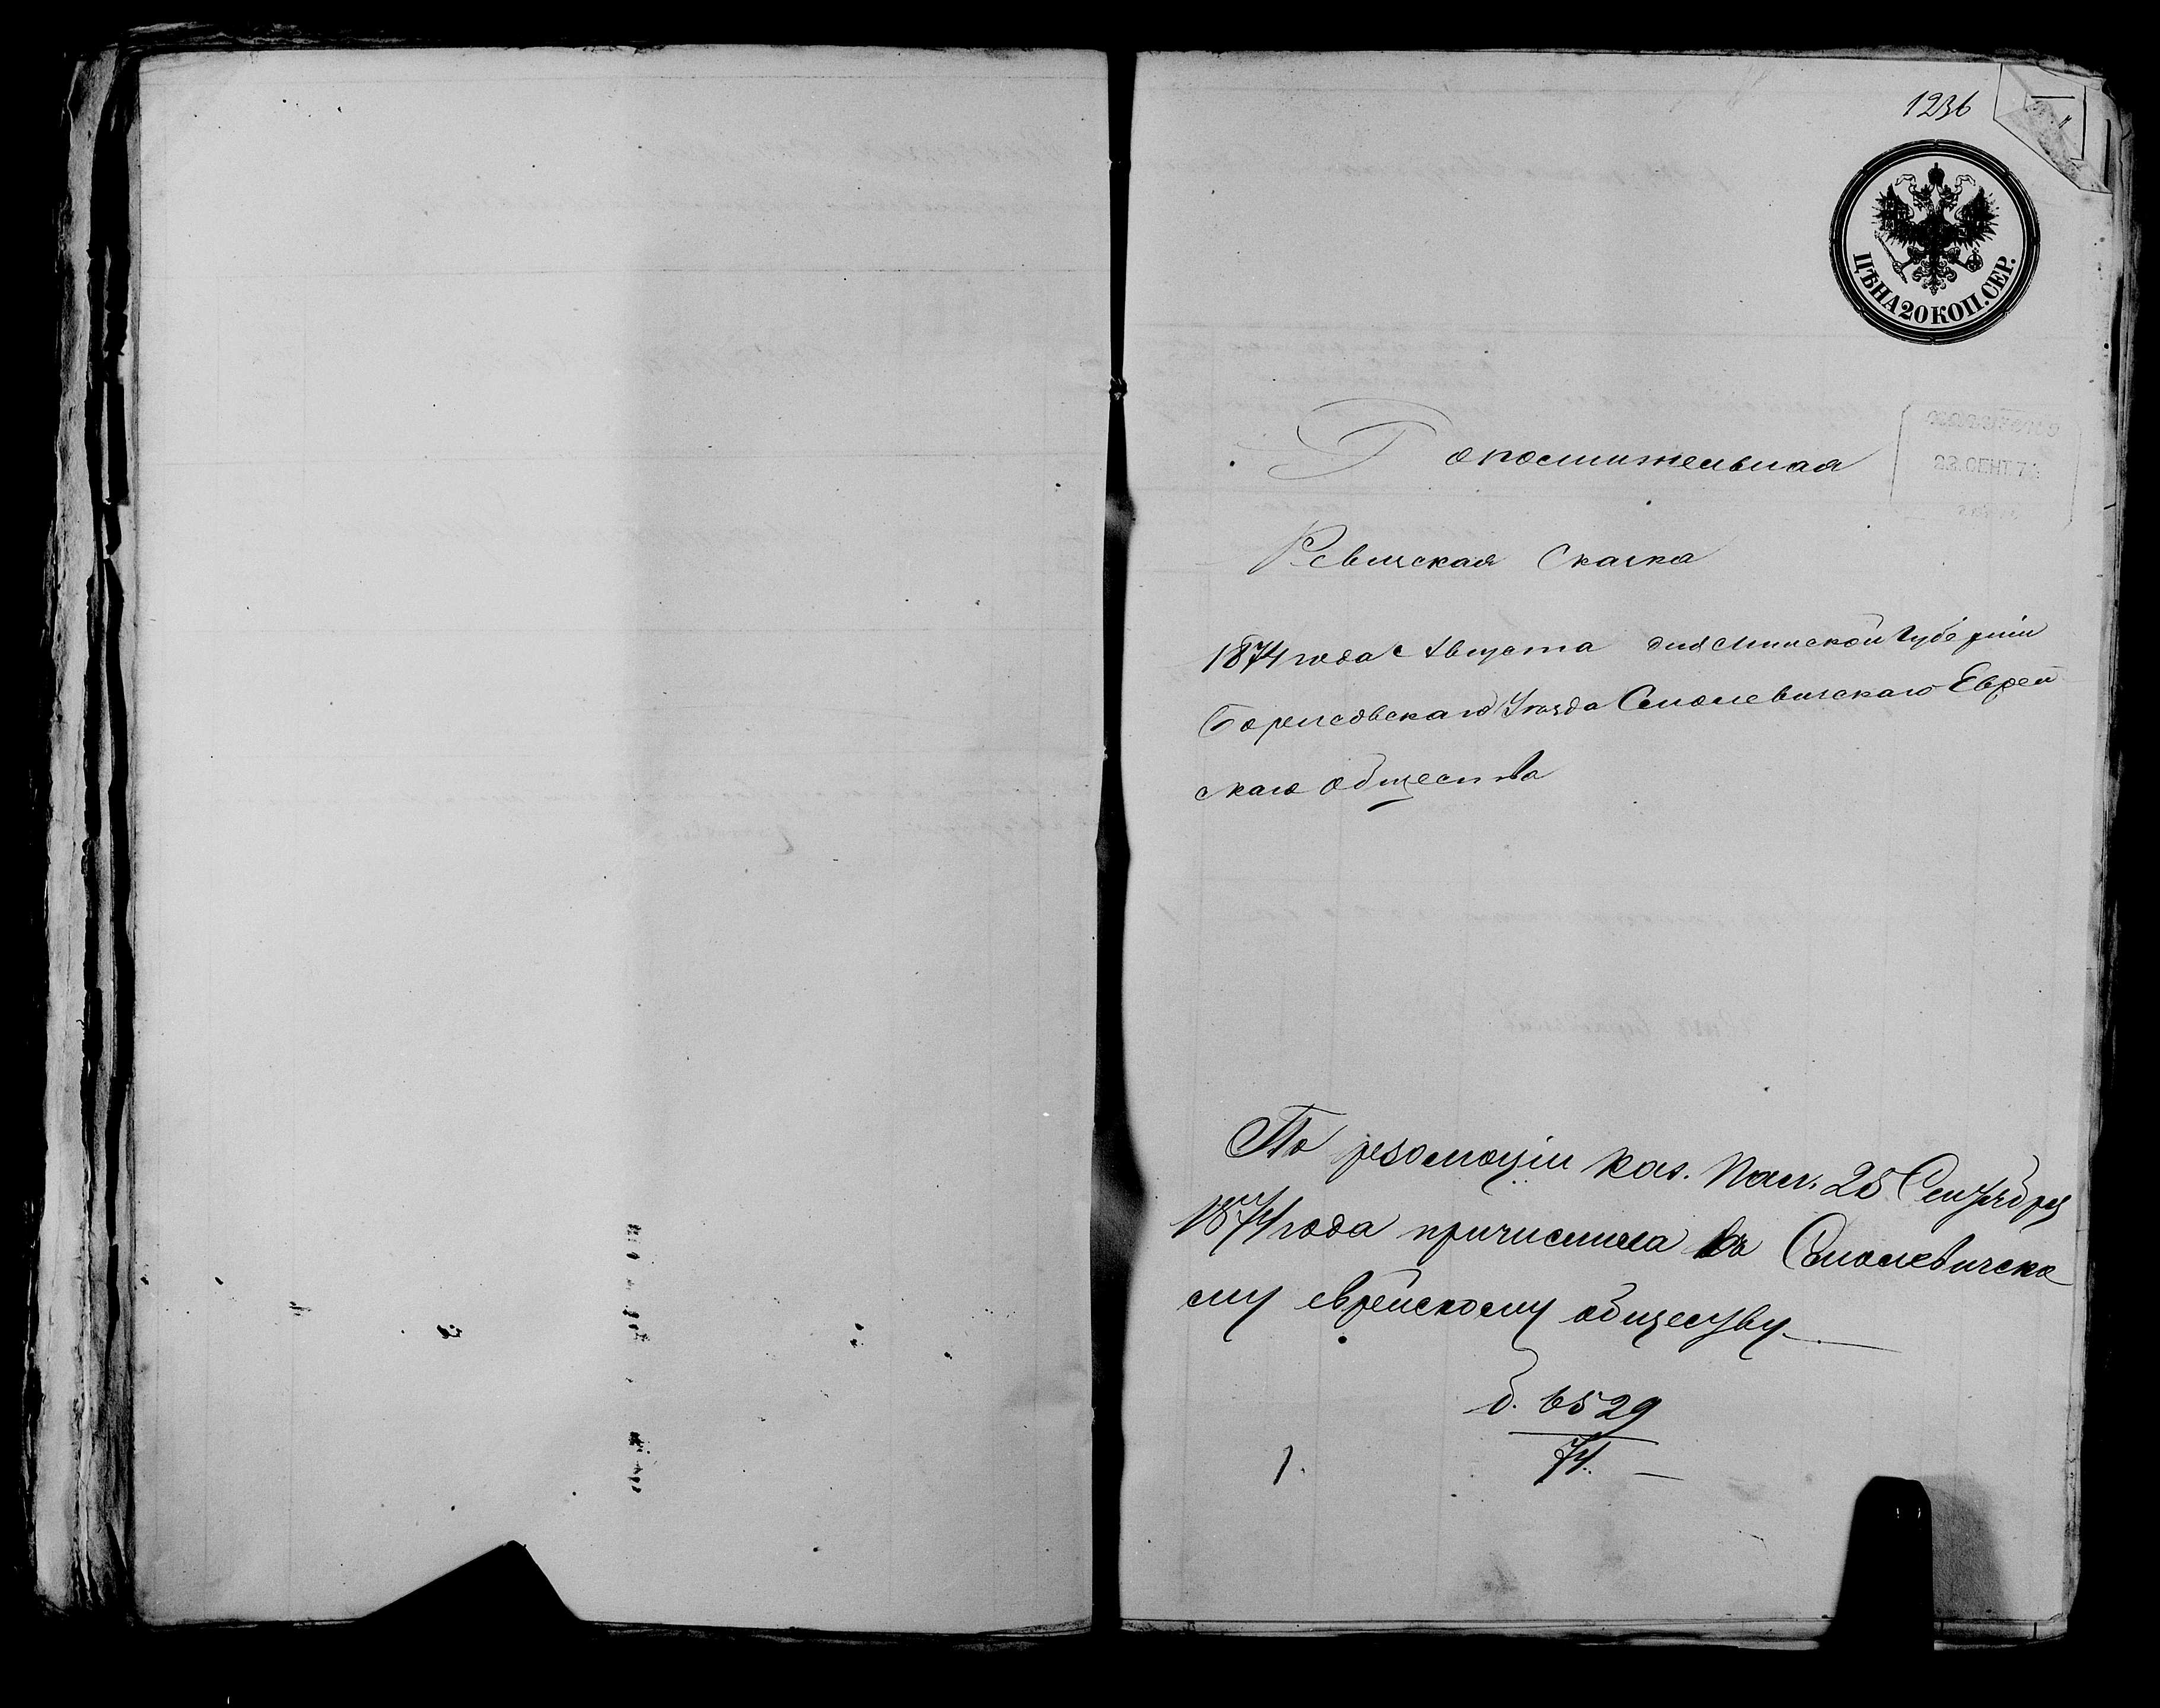 1236
ЦѢНА 20 КОП. СЕР.
22. СЕНТ. 74
Дополнительная
Ревизская Сказка
1874 года Августа дня Минской Губерніи
Борисовскаго Уѣзда Смолевичскаго Еврей
скаго общества
По резолюціи Каз. Пал. 25 Сентября
1874 года причислена къ Смолевичско
му еврейскому обществу
д. 6529
74.
1.